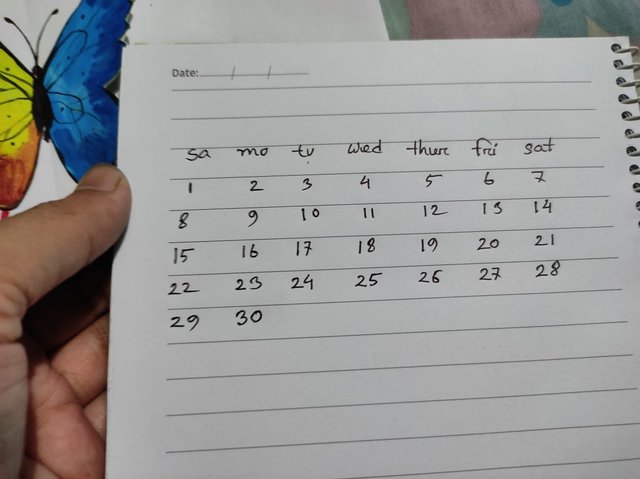 Date: / /
sa mo tu wed thur fri sat
1 2 3 4 5 6 7
8 9 10 11 12 13 14
15 16 17 18 19 20 21
22 23 24 25 26 27 28
29 30